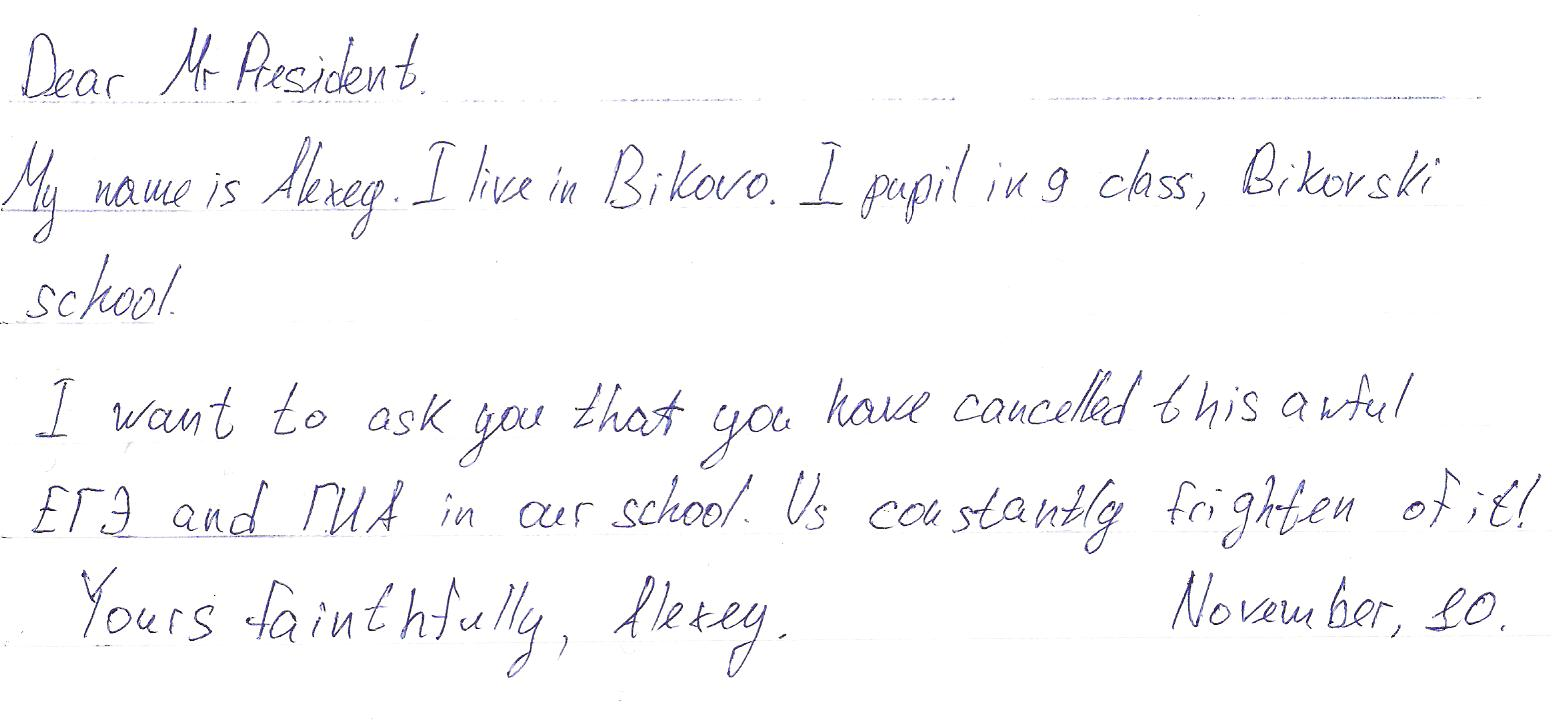 Dear Mr President.
My name is Alexey. I live in Bikovo. I pupil in 9 class, Bikovski
school.
I want to ask you that you have cancelled this awful
ЕГЭ and ГИА in our school. Us constantly frighten of it!
Yours fainthfully, Alexey. November, 10.